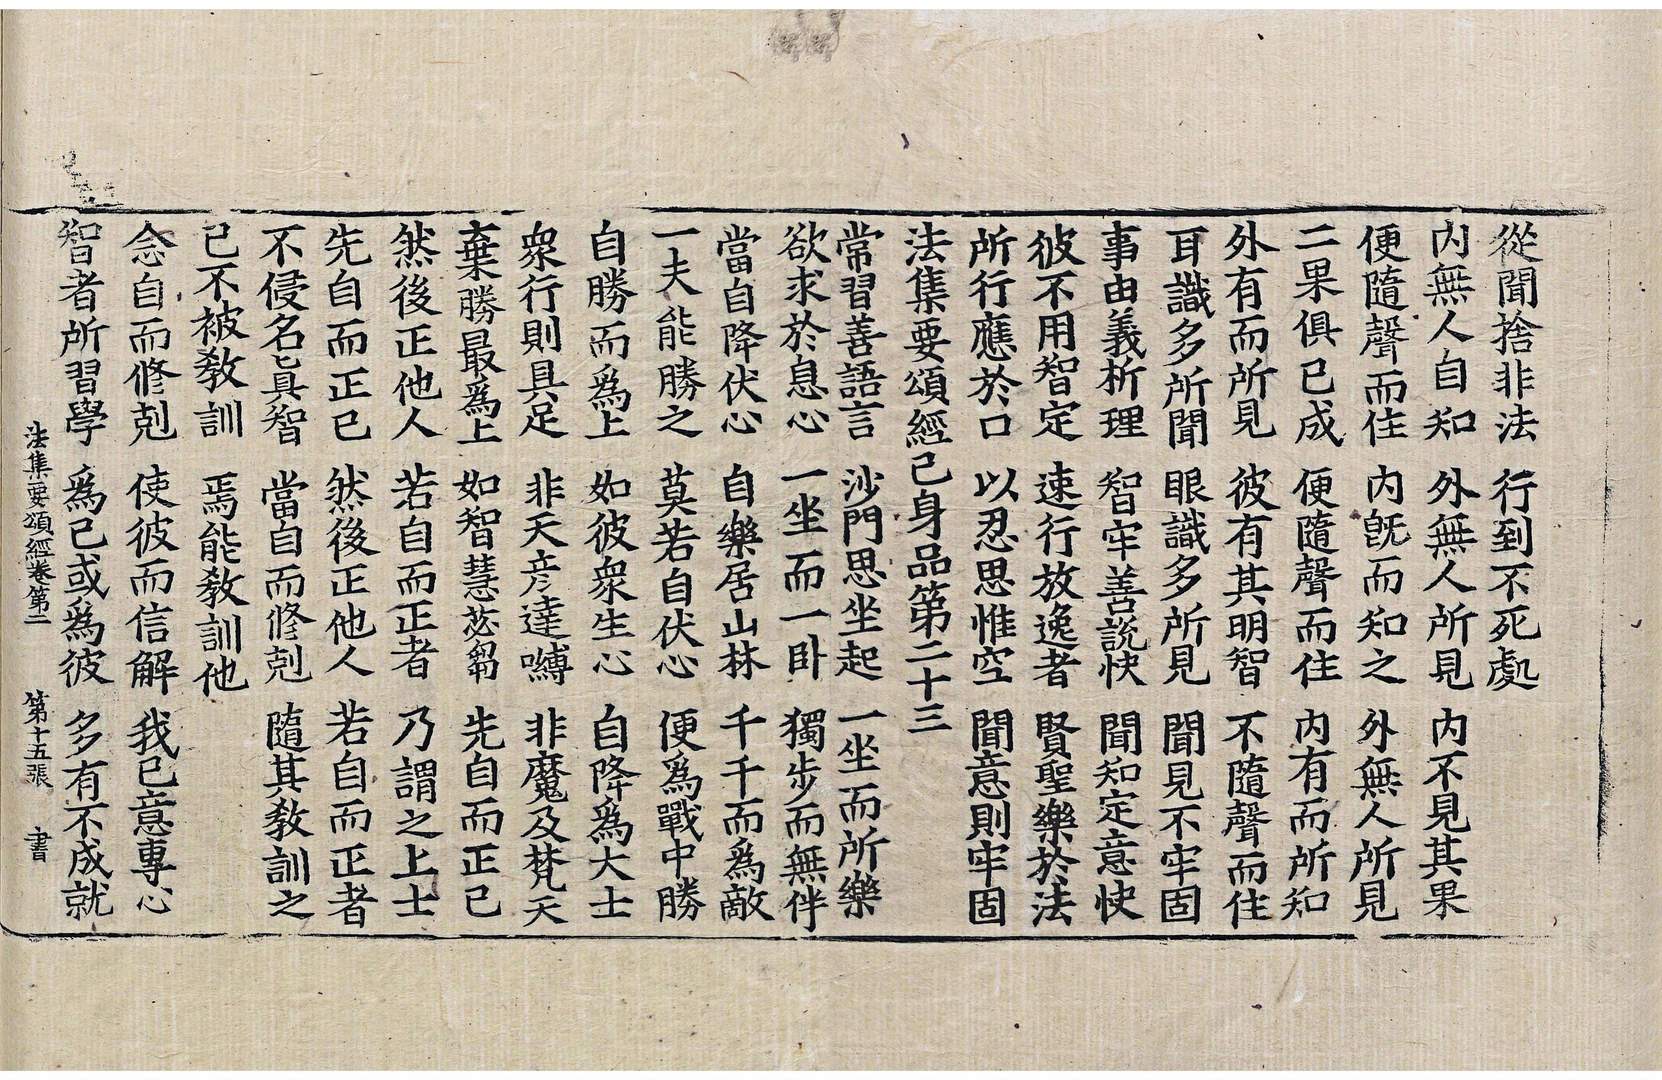 從聞捨非法　行到不死處
内無人自知　外無人所見　内不見其果
便隨聲而住　内旣而知之　外無人所見
二果俱已成　便隨聲而住　内有而所知
外有而所見　彼有其明智　不隨聲而住
耳識多所聞　眼識多所見　聞見不牢固
事由義析理　智牢善說快　聞知定意快
彼不用智定　速行放逸者　賢聖樂於法
所行應於口　以忍思惟空　聞意則牢固
法集要頌經己身品第二十三
常習善語言　沙門思坐起　一坐而所樂
欲求於息心　一坐而一卧　獨步而無伴
當自降伏心　自樂居山林　千千而爲敵
一夫能勝之　莫若自伏心　便爲戰中勝
自勝而爲上　如彼衆生心　自降爲大士
衆行則具足　非天彦達嚩　非魔及梵天
棄勝最爲上　如智慧苾芻　先自而正己
然後正他人　若自而正者　乃謂之上士
先自而正己　然後正他人　若自而正者
不侵名眞智　當自而修剋　隨其教訓之
己不被教訓　焉能教訓他
念自而修剋　使彼而信解　我已意專心
智者所習學　爲己或爲彼　多有不成就
法集要頌經卷第二　第十五張　書